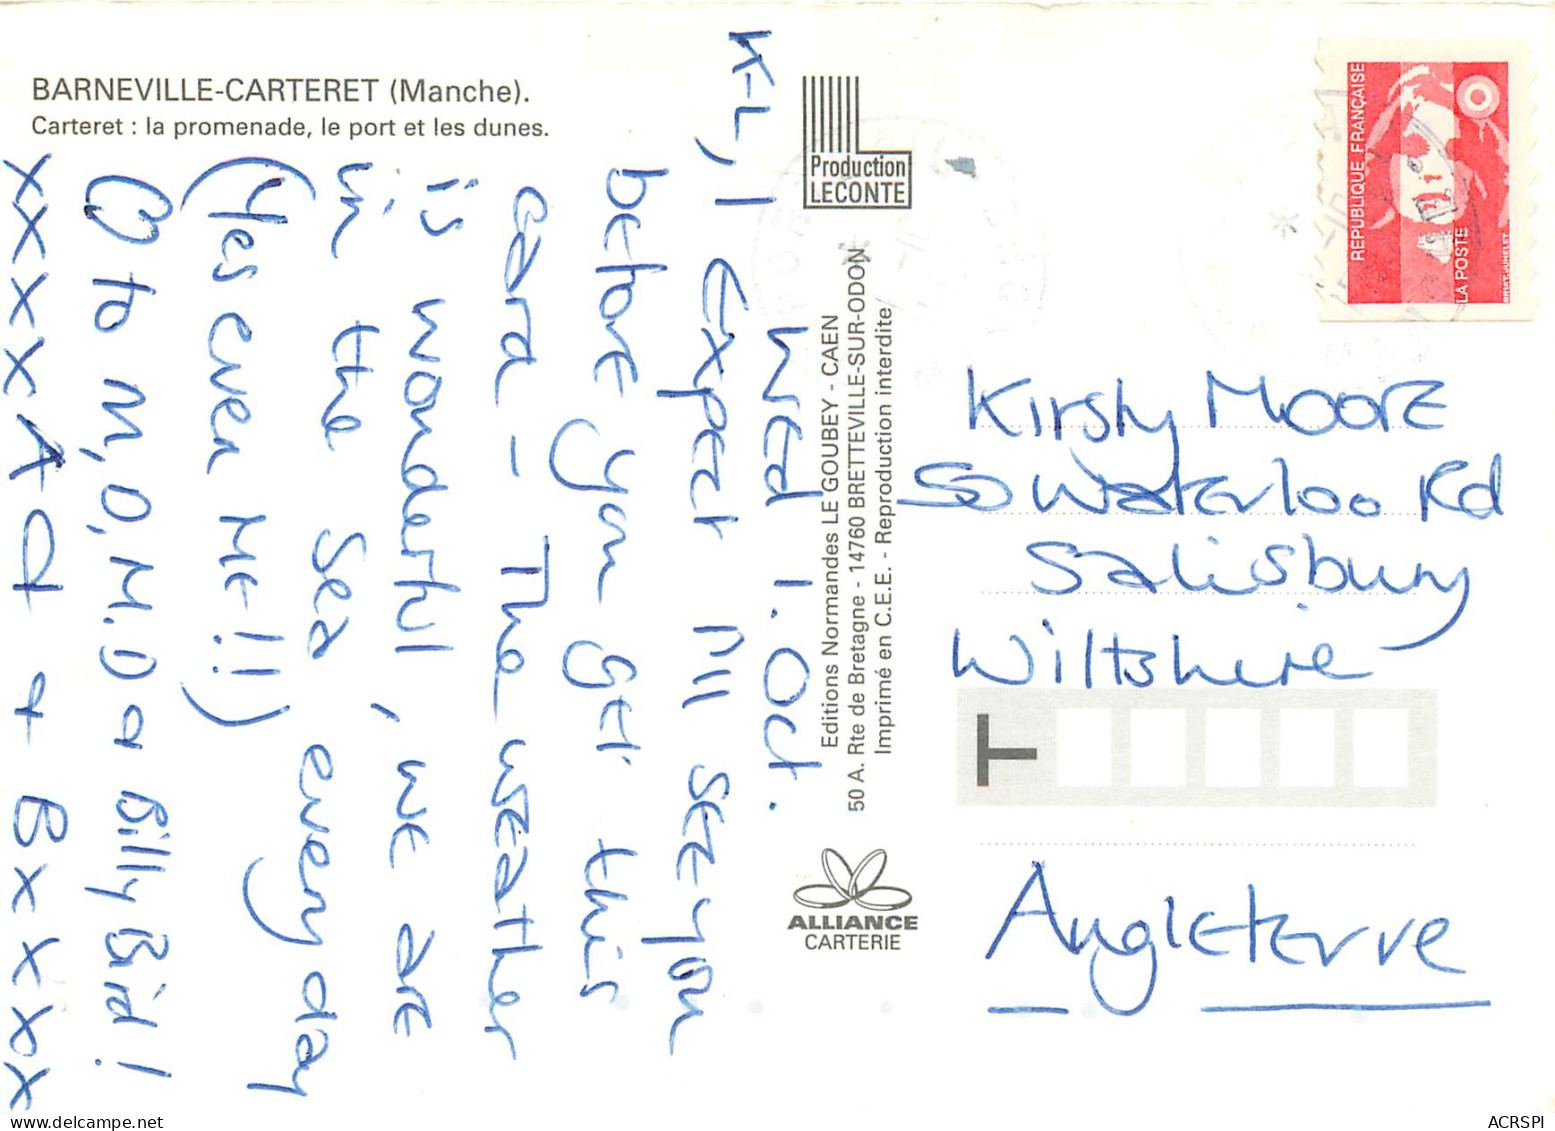 BARNEVILLE-CARTERET (Manche).
Carteret : la promenade, le port et les dunes.
Wed 1. Oct.
K-L, I Expect I'll SEE you
before you get this
card - The weather
is wonderful, we are
in the Sea every day
(Yes even ME!!)
O to M, D, M.D a Billy Bird!
xxxx A a + Bxxxxx
Production
LECONTE
Editions Normandes LE GOUBEY - CAEN
50 A. Rte de Bretagne - 14760 BRETTEVILLE-SUR-ODON
Imprimé en C.E.E. - Reproduction interdite
ALLIANCE
CARTERIE
REPUBLIQUE FRANÇAISE
LA POSTE
Kirsty Moore
50 Waterloo Rd
Salisbury
Wiltshire
T
Angleterre
ACRSPI